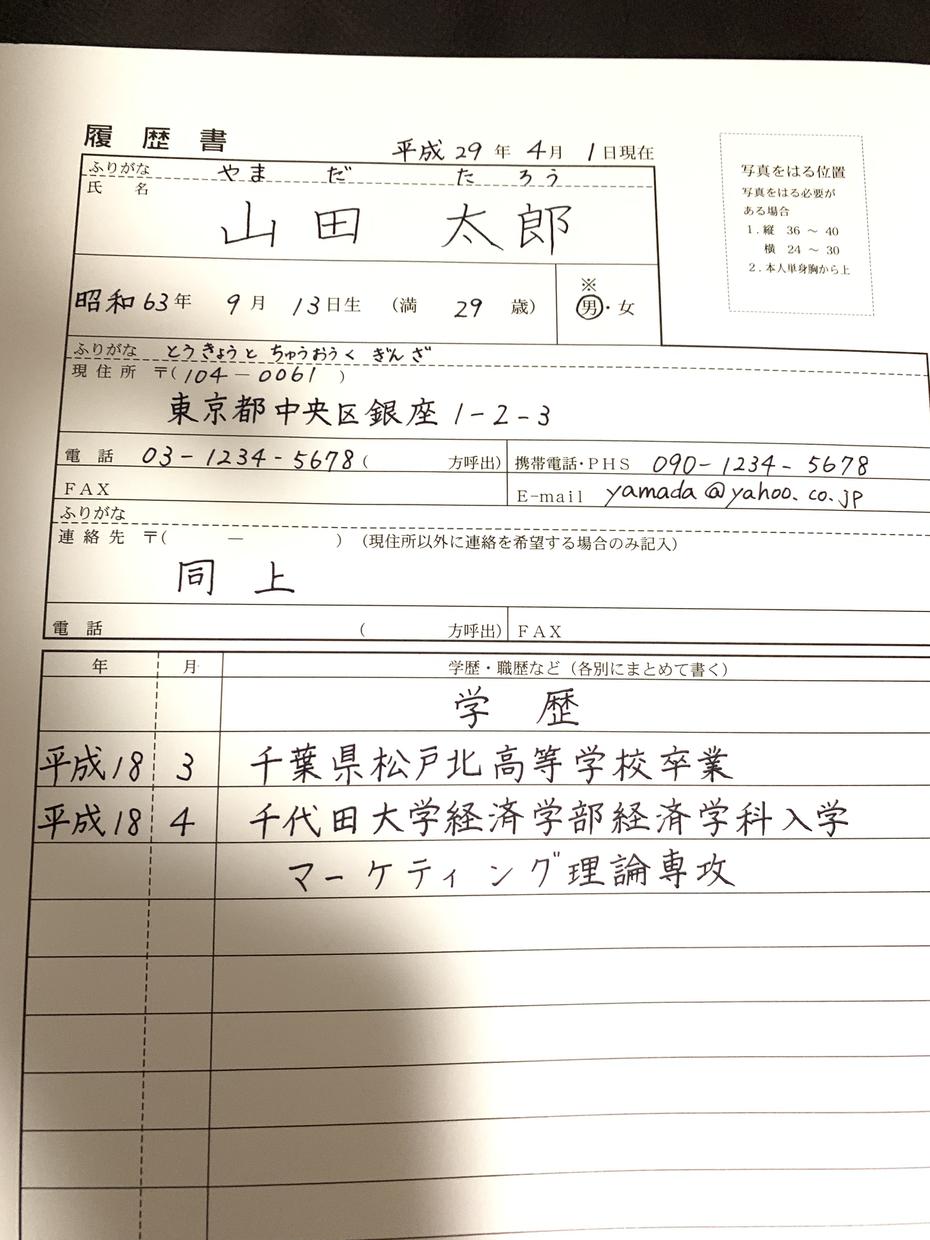 履歴書
平成29年4月1日現在
ふりがな やまだ たろう
氏名
山田 太郎
昭和63年 9月 13日生 (満 29 歳)
※
男・女
写真をはる位置
写真をはる必要が
ある場合
1.縦 36 ～ 40
横 24 ～ 30
2.本人単身胸から上
ふりがな とうきょうと ちゅうおうく ぎんざ
現住所 〒(104-0061)
東京都中央区銀座1-2-3
電話 03-1234-5678( 方呼出)
携帯電話・PHS 090-1234-5678
FAX
E-mail yamada@yahoo.co.jp
ふりがな
連絡先 〒( - ) (現住所以外に連絡を希望する場合のみ記入)
同上
電話 ( 方呼出) FAX
年 月 学歴・職歴など(各別にまとめて書く)
学歴
平成18 3 千葉県松戸北高等学校卒業
平成18 4 千代田大学経済学部経済学科入学
マーケティング理論専攻